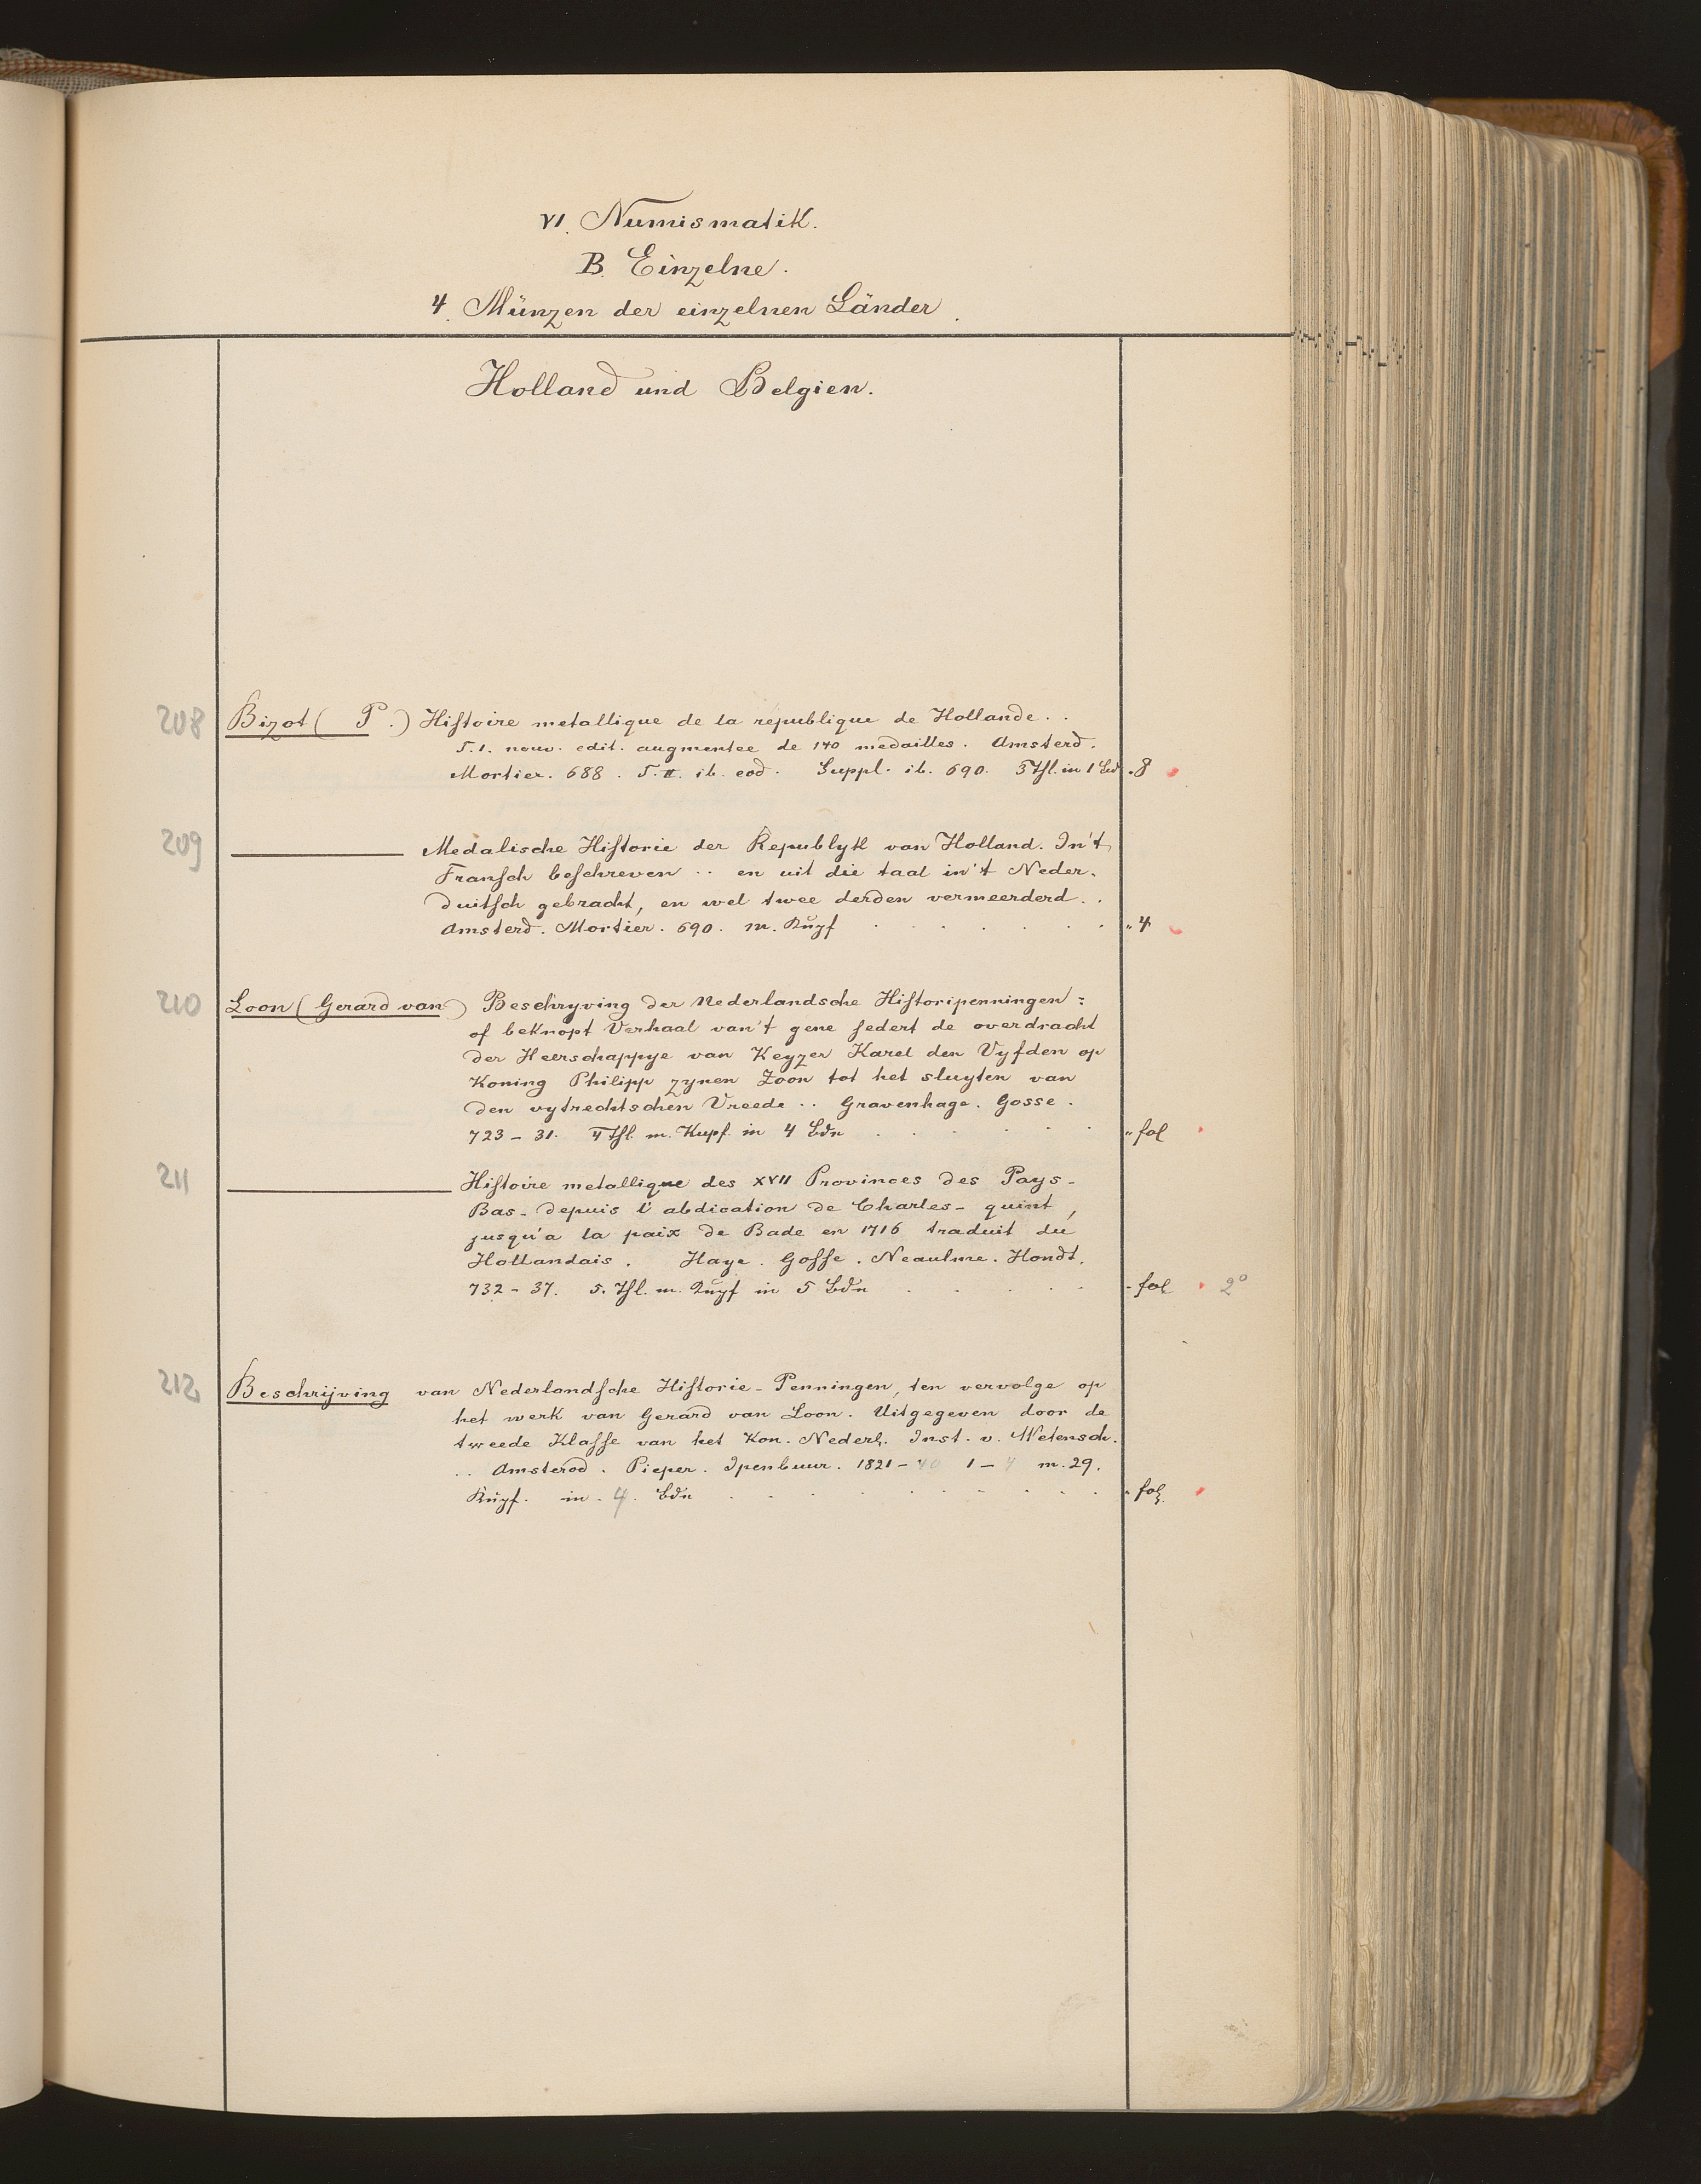 VI. Numismatik.
B. Einzelne.
4. Münzen der einzelnen Länder.
Holland und Belgien.
208 Bizot ( P .) Histoire metallique de la republique de Hollande . .
T. I. nouv. edit. augmentee de 140 medailles. Amsterd.
Mortier. 688. T. II. ib. eod. Suppl. ib. 690. 3 Thl. in 1 Bd. 8
209 ——— Medalische Historie der Republyk van Holland. In't
Fransch beschreven .. en uit die taal in't Neder-
duitsch gebracht, en wel twee derden vermeerderd . .
Amsterd. Mortier. 690. m. Kupf . . . . . . " 4
210 Loon (Gerard van) Beschryving der Nederlandsche Historipenningen:
of beknopt Verhaal van't gene sedert de overdracht
der Heerschappye van Keyzer Karel den Vyfden op
Koning Philipp zynen Zoon tot het sluyten van
den uytrechtschen Vreede .. Gravenhage. Gosse.
723-31. 4 Thl. m. Kupf. in 4 Bdn . . . . . . " fol
211 ——— Histoire metallique des XVII Provinces des Pays-
Bas - depuis l'abdication de Charles-quint,
jusqu'a la paix de Bade en 1716 traduit du
Hollandais. Haye. Gosse. Neaulme. Hondt.
732-37. 5. Thl. m. Kupf in 5 Bdn . . . . . - fol 2°
212 Beschrijving van Nederlandsche Historie-Penningen, ten vervolge op
het werk van Gerard van Loon. Uitgegeven door de
tweede Klasse van het Kon. Nederl. Inst. v. Wetensch.
.. Amsterod. Pieper. Ipenbuur. 1821-40 1-4 m. 29.
Kupf. in 4. Bdn . . . . . . . . . " fol.